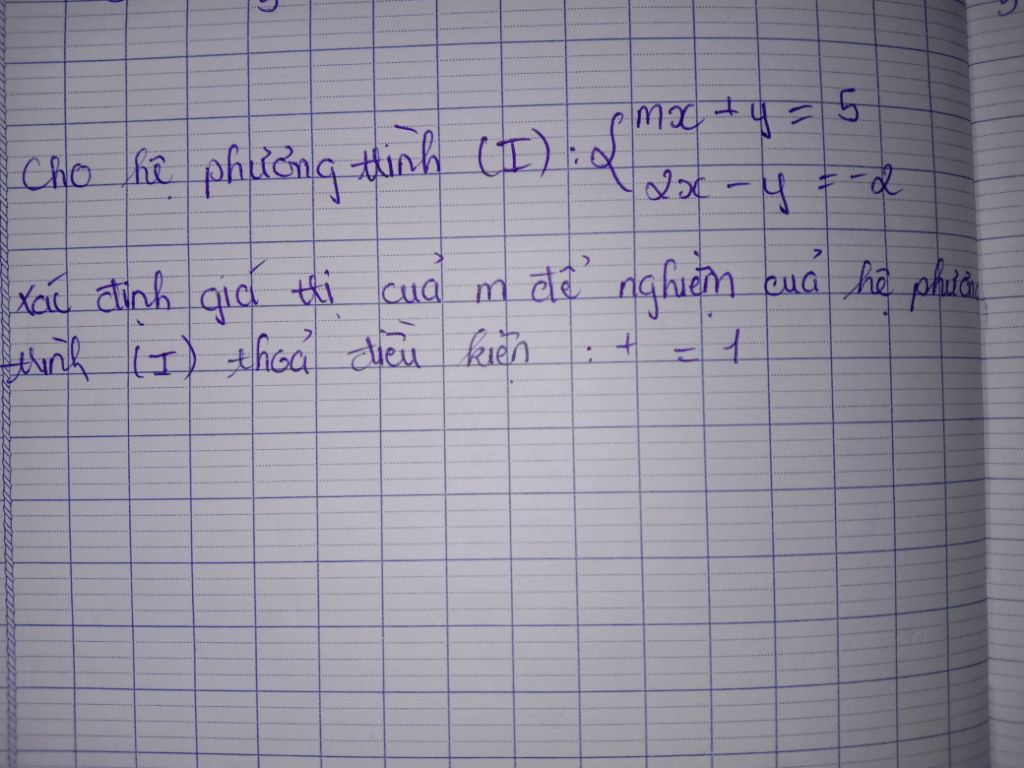 Cho hệ phương trình (I): { mx + y = 5
2x - y = -2
xác định giá trị của m để nghiệm của hệ phương
trình (I) thoả điều kiện : + = 1